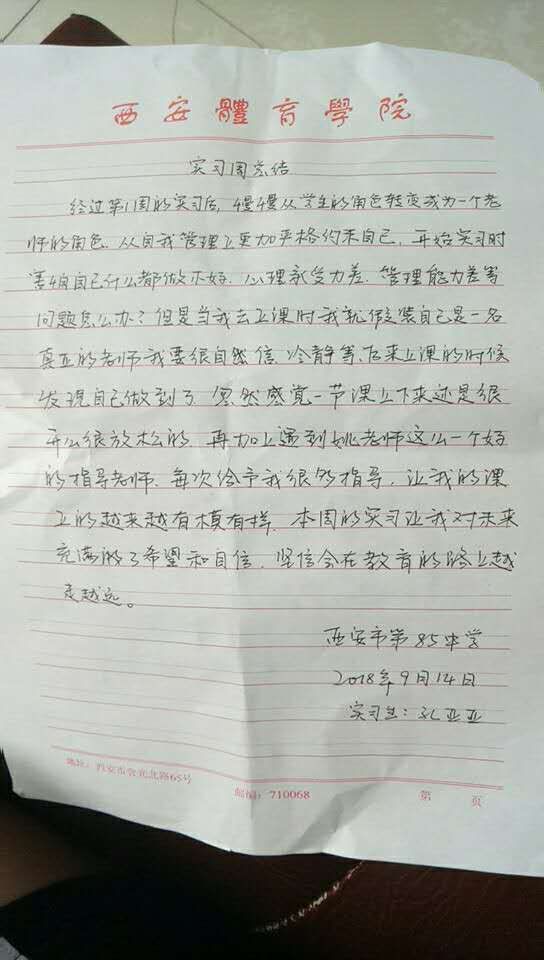 西安體育學院
实习周总结
经过第1周的实习后,慢慢从学生的角色转变成为一个老
师的角色。从自我管理上更加严格约束自己,开始实习时
害怕自己什么都做不好,心理承受力差,管理能力差等
问题怎么办?但是当我去上课时我就假装自己是一名
真正的老师我要很自然信,冷静等,后来上课的时候
发现自己做到了忽然感觉一节课上下来还是很
开心很放松的,再加上遇到姚老师这么一个好
的指导老师,每次给予我很多指导,让我的课
上的越来越有模有样,本周的实习让我对未来
充满的了希望和自信,坚信会在教育的路上越
走越远。
西安市第85中学
2018年9月14日
实习生:孔亚亚
地址:西安市含光北路65号
邮编:710068
第 页